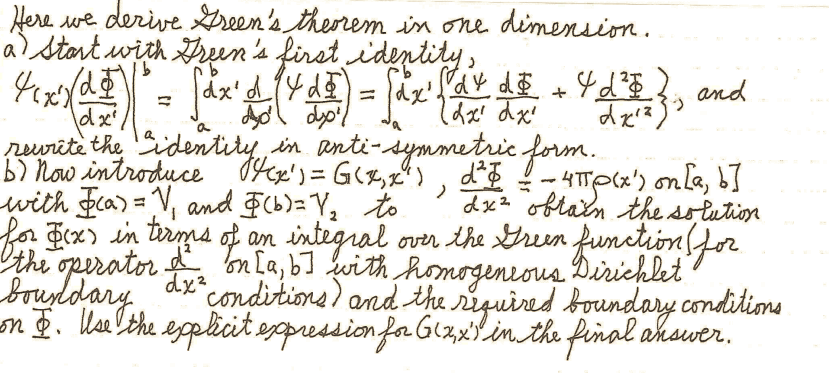 Here we derive Green's theorem in one dimension.
a) Start with Green's first identity,
Ψ(x')(dΦ/dx')|_a^b = ∫_a^b dx' d/dx'(Ψ dΦ/dx') = ∫_a^b dx' {dΨ/dx' dΦ/dx' + Ψ d²Φ/dx'²}, and
rewrite the identity in anti-symmetric form.
b) Now introduce Ψ(x') = G(x,x'), d²Φ/dx² = -4πρ(x') on [a, b]
with Φ(a) = V₁ and Φ(b) = V₂ to obtain the solution
for Φ(x) in terms of an integral over the Green function (for
the operator d²/dx² on [a, b] with homogeneous Dirichlet
boundary conditions) and the required boundary conditions
on Φ. Use the explicit expression for G(x,x') in the final answer.